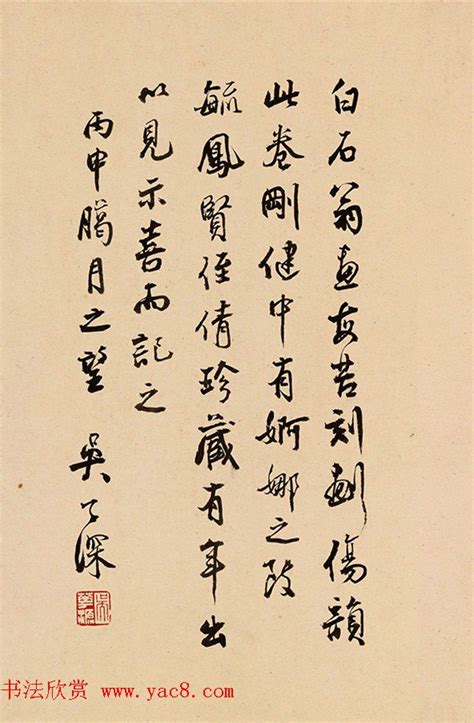 白石翁畫每苦刻劃傷韻
此卷剛健中有婀娜之致
毓鳳賢侄倩珍藏有年出
以見示喜而記之
丙申臘月之望 吳子深
书法欣赏 www.yac8.com